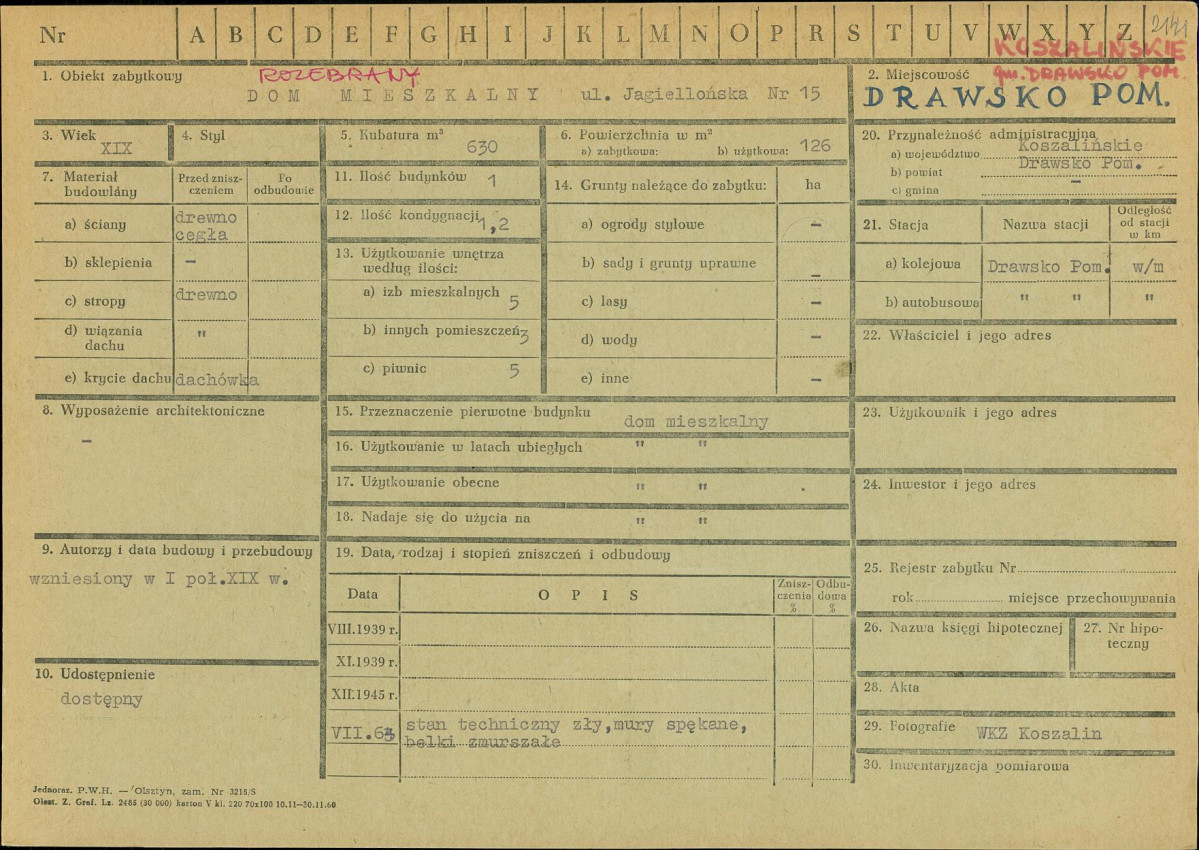 Nr A B C D E F G H I J K L M N O P R S T U V W X Y Z 2141
KOSZALIŃSKIE
gm. DRAWSKO POM.
1. Obiekt zabytkowy ROZEBRANY
DOM MIESZKALNY ul. Jagiellońska Nr 15
2. Miejscowość
DRAWSKO POM.
3. Wiek
XIX
4. Styl
5. Kubatura m³
630
6. Powierzchnia w m²
a) zabytkowa: b) użytkowa: 126
7. Materiał budowlany
Przed zniszczeniem
Po odbudowie
a) ściany drewno
cegła
b) sklepienia –
c) stropy drewno
d) wiązania dachu "
e) krycie dachu dachówka
8. Wyposażenie architektoniczne
–
9. Autorzy i data budowy i przebudowy
wzniesiony w I poł.XIX w.
10. Udostępnienie
dostępny
11. Ilość budynków 1
12. Ilość kondygnacji 1,2
13. Użytkowanie wnętrza
według ilości:
a) izb mieszkalnych 5
b) innych pomieszczeń 3
c) piwnic 5
14. Grunty należące do zabytku: ha
a) ogrody stylowe –
b) sady i grunty uprawne –
c) lasy –
d) wody –
e) inne –
15. Przeznaczenie pierwotne budynku dom mieszkalny
16. Użytkowanie w latach ubiegłych " "
17. Użytkowanie obecne " "
18. Nadaje się do użycia na " "
19. Data, rodzaj i stopień zniszczeń i odbudowy
Data OPIS Zniszczenia % Odbudowa %
VIII.1939 r.
XI.1939 r.
XII.1945 r.
VII.63 stan techniczny zły,mury spękane,
belki zmurszałe
20. Przynależność administracyjna
a) województwo Koszalińskie
b) powiat Drawsko Pom.
c) gmina –
21. Stacja Nazwa stacji Odległość od stacji w km
a) kolejowa Drawsko Pom. w/m
b) autobusowa " " "
22. Właściciel i jego adres
23. Użytkownik i jego adres
24. Inwestor i jego adres
25. Rejestr zabytku Nr
rok miejsce przechowywania
26. Nazwa księgi hipotecznej
27. Nr hipoteczny
28. Akta
29. Fotografie WKZ Koszalin
30. Inwentaryzacja pomiarowa
Jednoraz. P.W.H. — Olsztyn, zam. Nr 3215/S
Olszt. Z. Graf. Lz. 2485 (30 000) karton V kl. 220 70x100 10.11—30.11.60